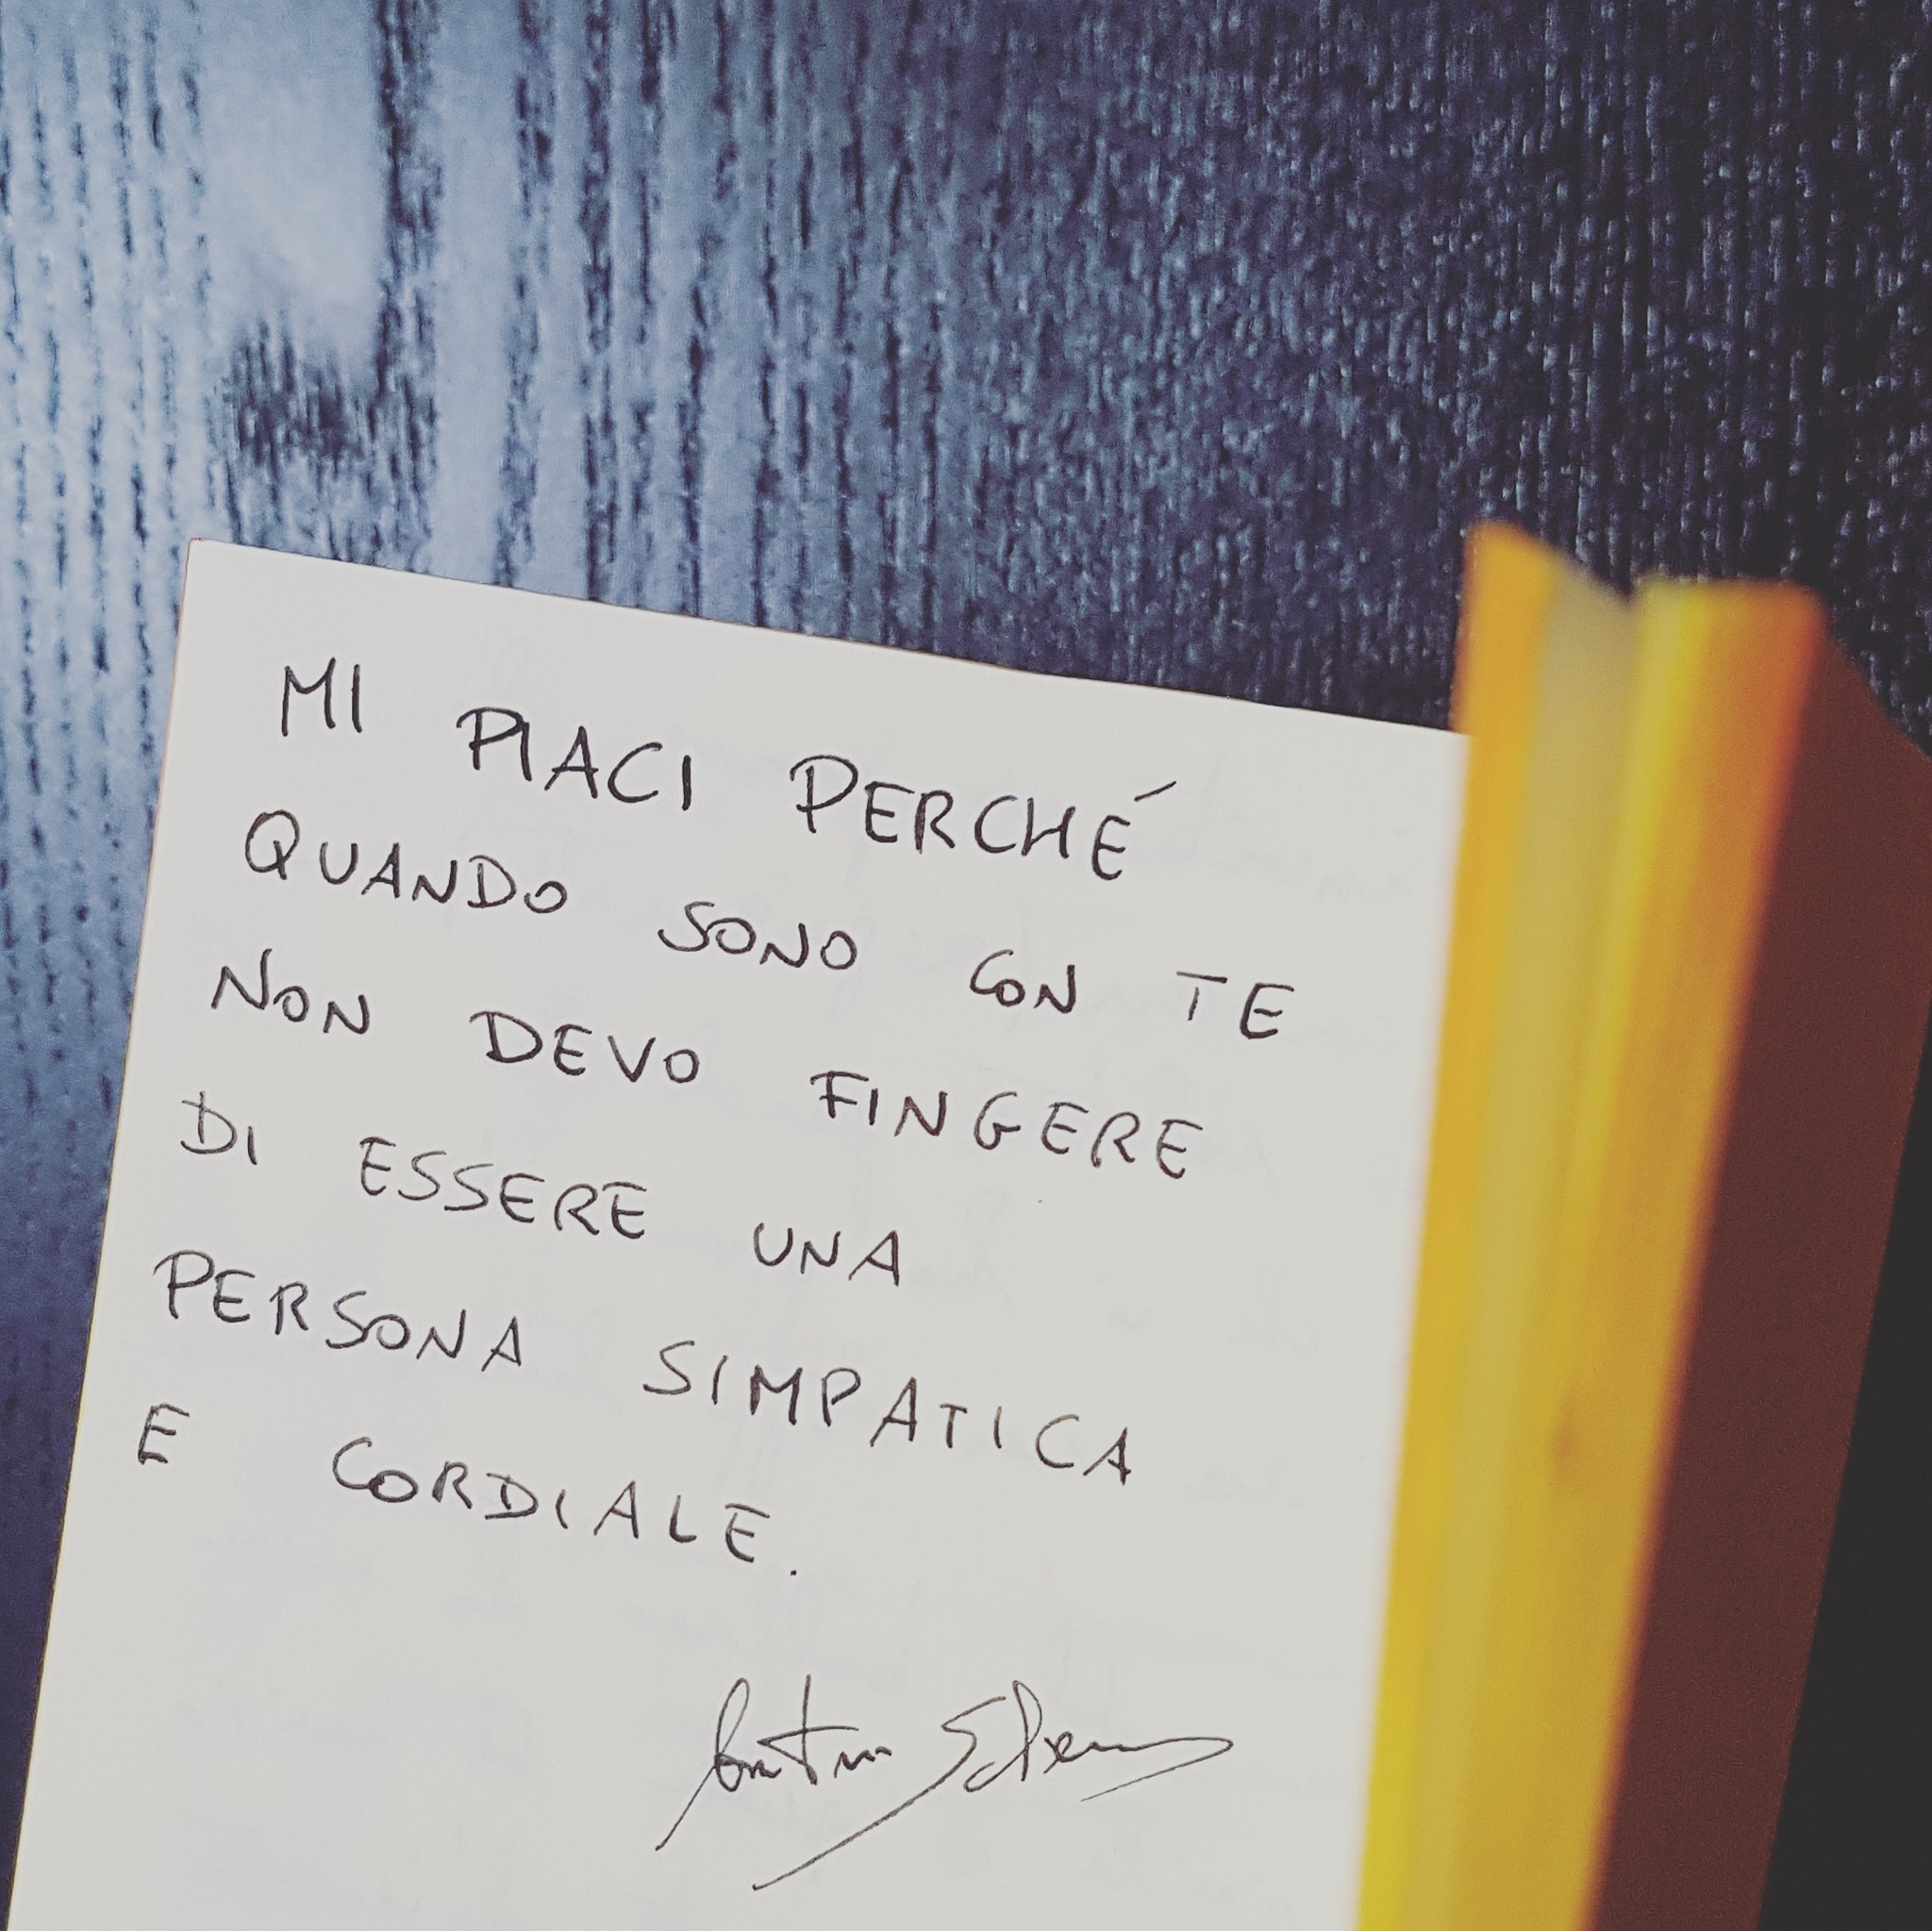 MI PIACI PERCHÉ
QUANDO SONO CON TE
NON DEVO FINGERE
DI ESSERE UNA
PERSONA SIMPATICA
E CORDIALE.